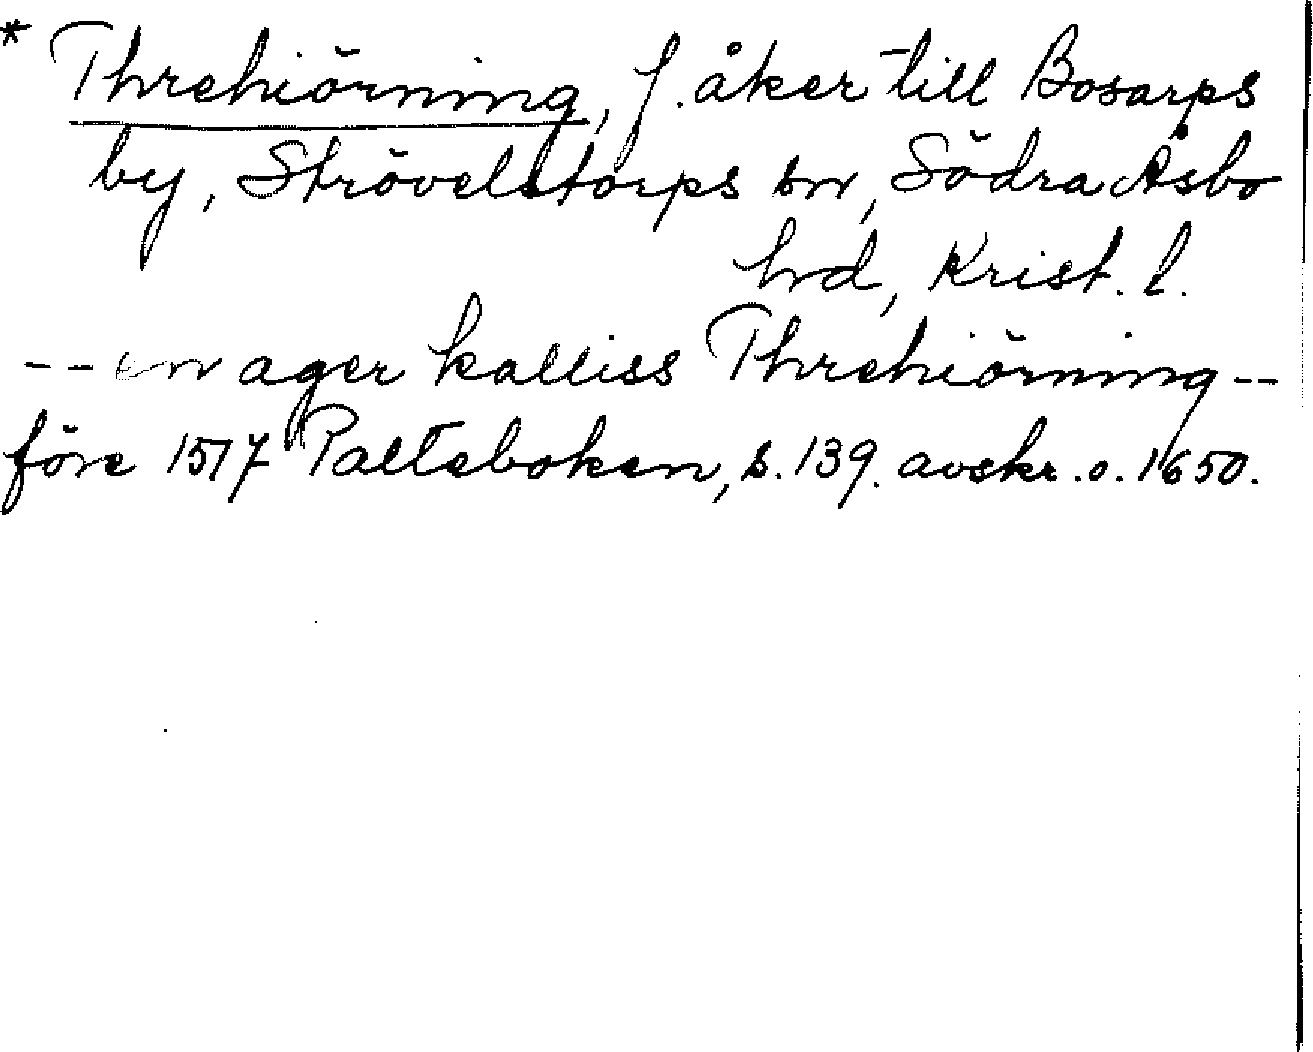 * Threhiörning, f. åker till Bosarps
by, Strövelstorps sn, Södra Åsbo
hrd, Krist. l.
-- en ager kalliss Threhiörning --
före 1517 Palteboken, s. 139. avskr. o. 1650.